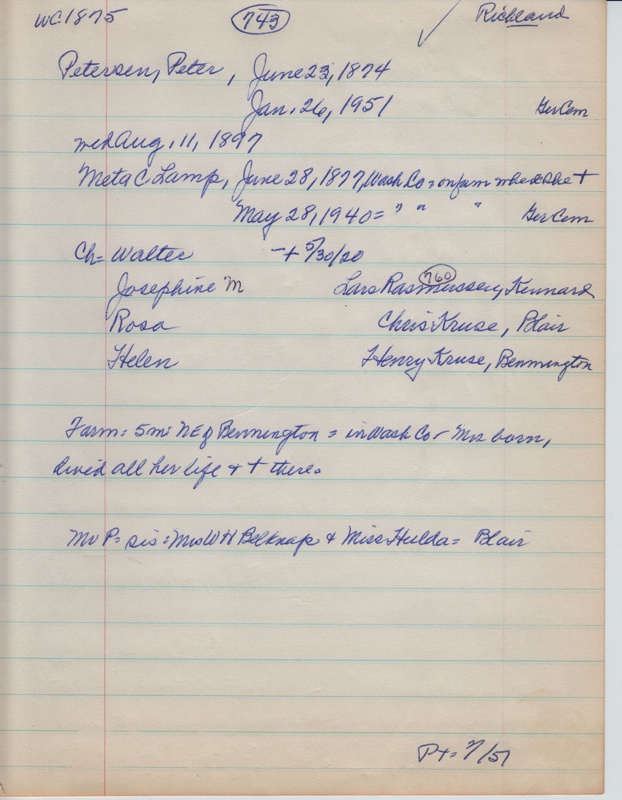 WC1875 743 Richland
Petersen, Peter, June 23, 1874
Jan. 26, 1951 Ger Cem
wed Aug. 11, 1897
Meta C Lamp, June 28, 1877, Wash Co = on farm where she +
May 28, 1940 = " " " Ger Cem
Ch = Walter - + 5/30/20
Josephine M Lars Rasmussen, Kennard 760
Rosa Chris Kruse, Blair
Helen Henry Kruse, Bennington
Farm: 5 mi NE of Bennington = in Wash Co - Mrs born,
lived all her life & + there.
Mr P = sis: Mrs W H Belknap & Miss Hulda = Blair
P+ = 7/51